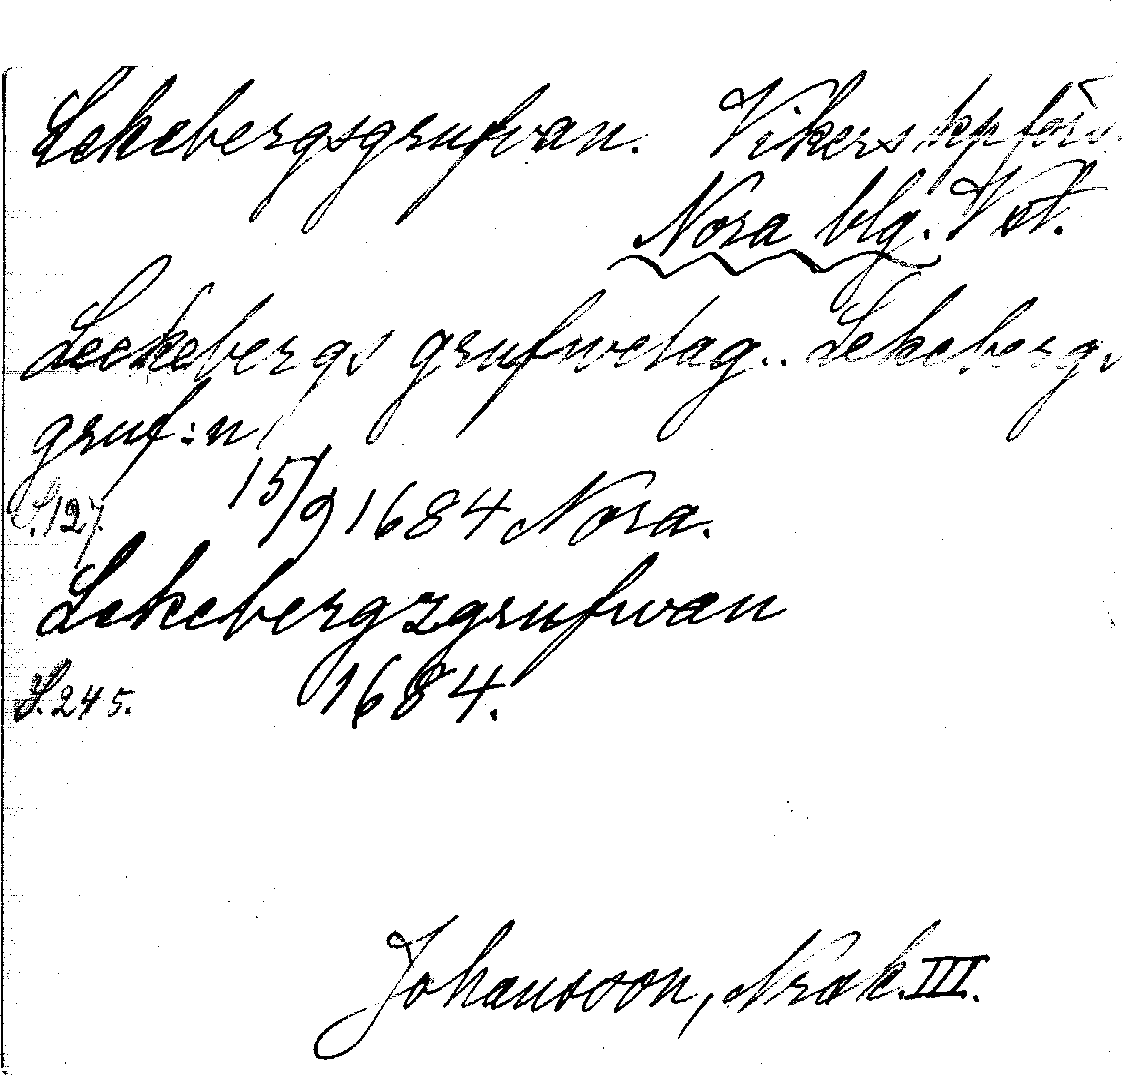 Lekebergsgrufvan. Vikers kpförs.
Nora blg. Vst.
Leekebergs grufwelag.. Lekebergs
gruf:n
S.127. 15/9 1684 Nora.
Lekebergzgrufwan
S.245. 1684.
Johansson, Nrak. III.